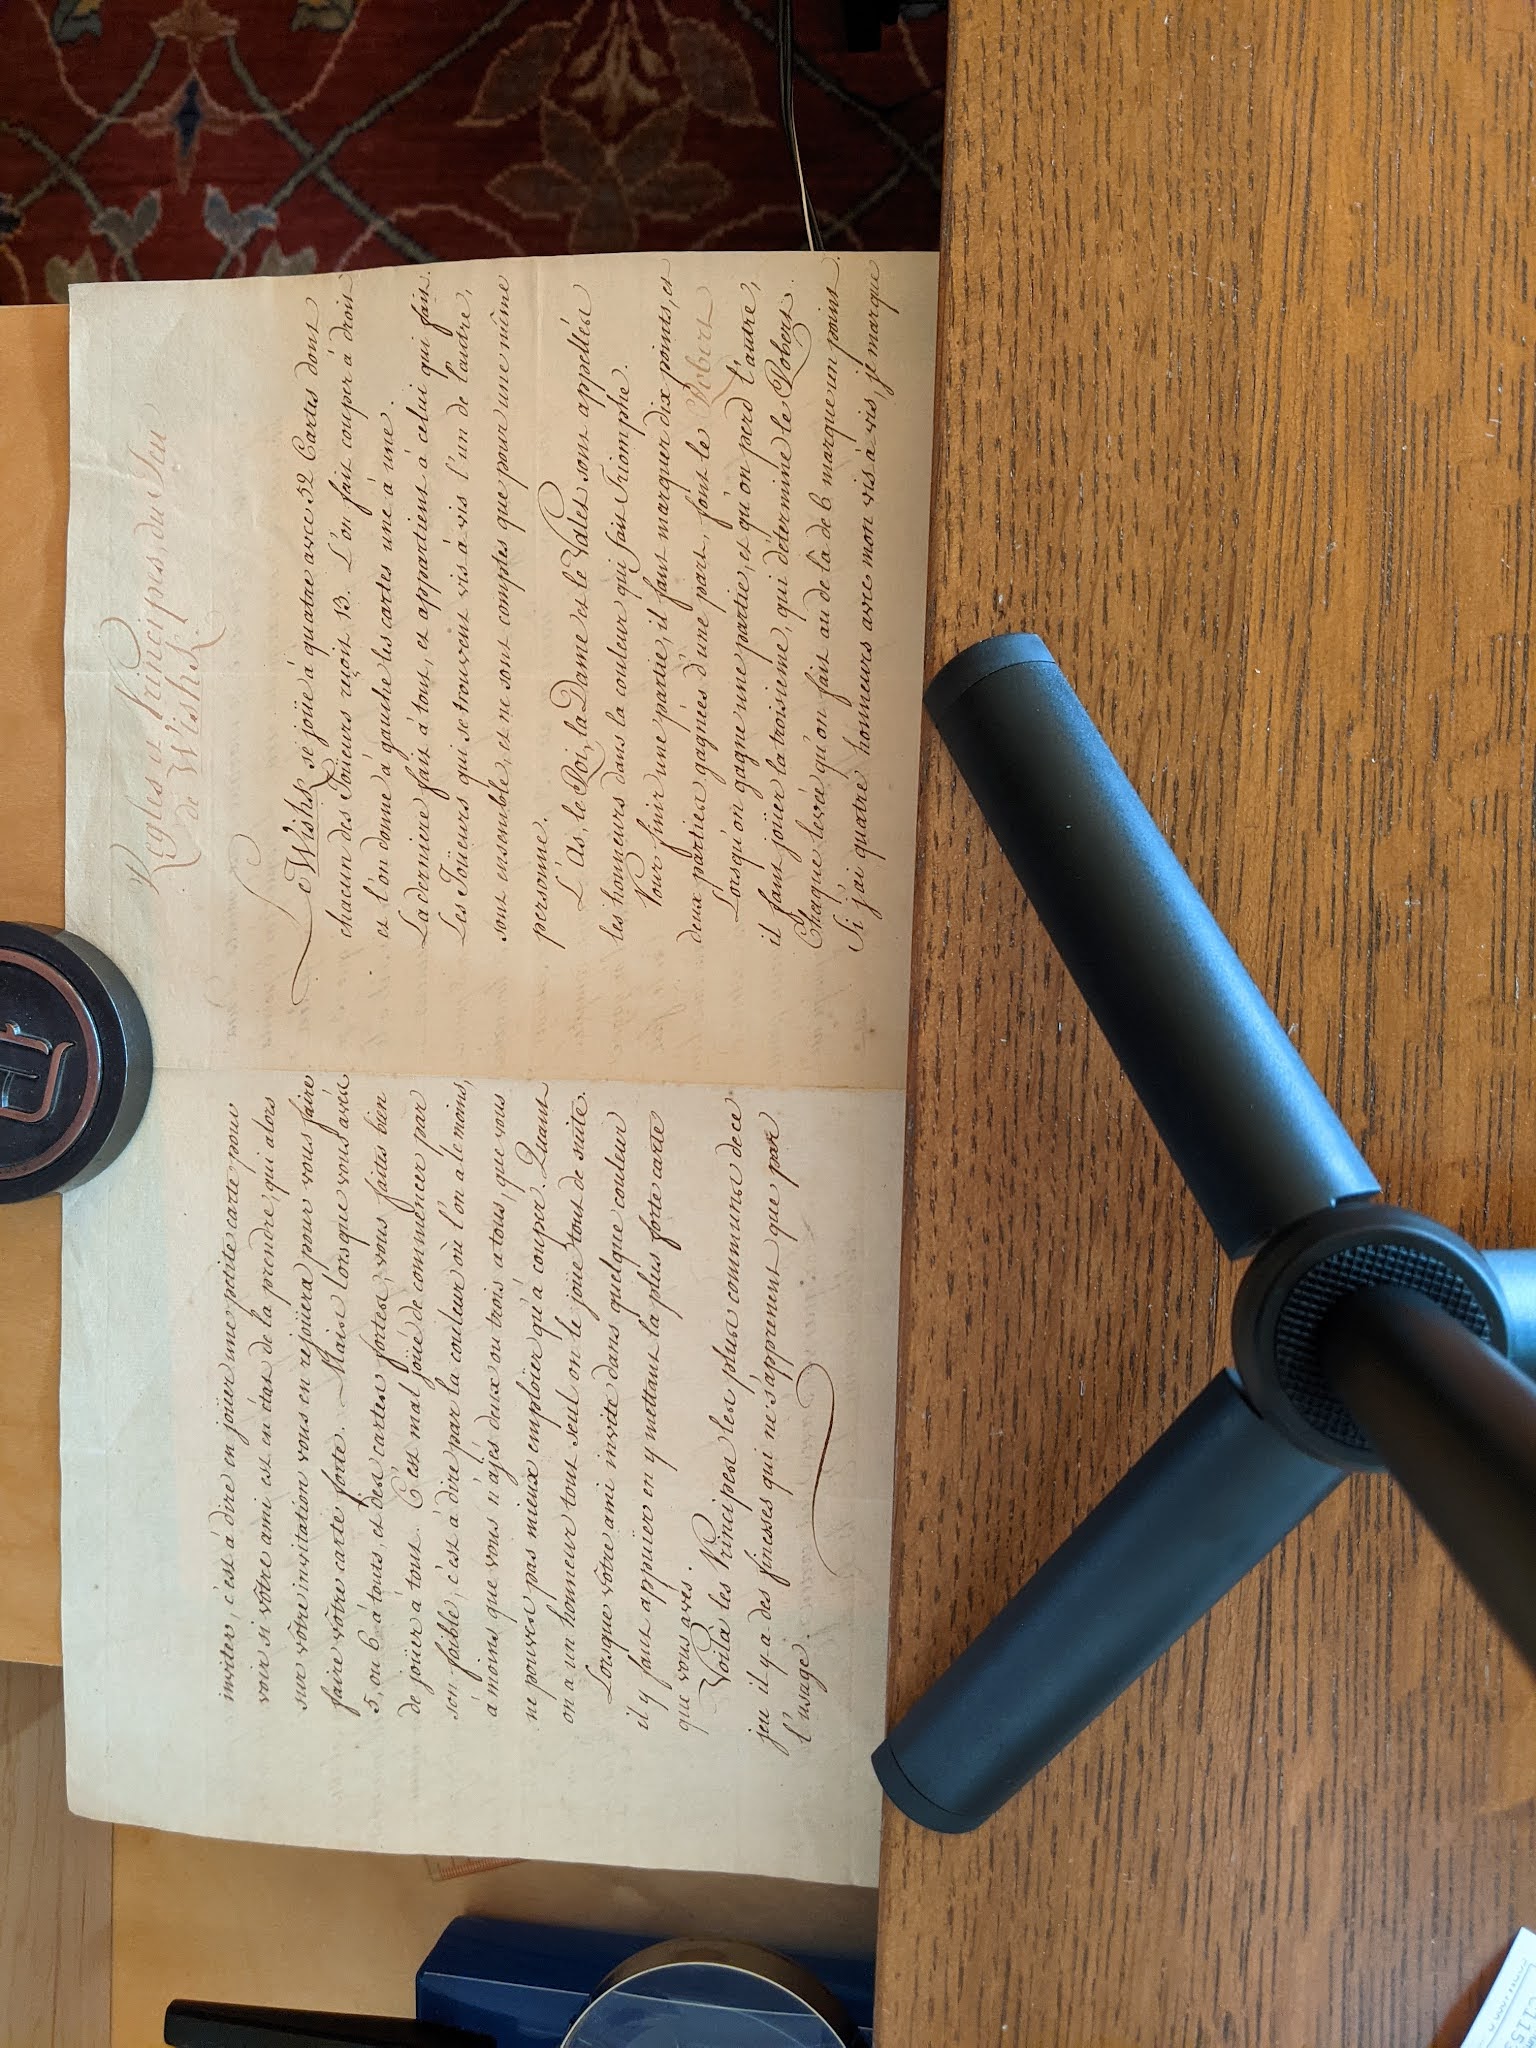 inviter, c'est à dire en joüer une petite carte pour
voir si vôtre ami est au état de la prendre, qui alors
sur vôtre invitation vous en rejoüera pour vous faire
faire vôtre carte forte. Mais lorsque vous avés
5, ou 6 à touts, et des cartes fortes, vous faites bien
de joüer à tout. C'est mal joüé de commencer par
son foible, c'est à dire par la couleur où l'on a le moins,
à moins que vous n'ajés deux ou trois atous, que vous
ne pouvés pas mieux emploier qu'à couper. Quant
on a un honneur tout seul on le joue tout de suite.
Lorsque vôtre ami invite dans quelque couleur
il y faut appuier en y mettant la plus forte carte
que vous avés.
Voilà les Principes les plus communs de ce
jeu il y a des finesses qui ne s'apprennent que par
l'usage.
Regles et Principes, du Jeu
de Wishk.
Le Wishk se joüe à quatre avec 52 Cartes dont
chacun des Joüeurs reçoit 13. L'on fait couper à droit
et l'on donne à gauche les cartes une à une.
La derniere fait à tout, et appartient à celui qui fait.
Les Joüeurs qui se trouvent vis à vis l'un de l'autre,
sont ensemble, et ne sont comptés que pour une même
personne.
L'As, le Roi, la Dame et le Valet sont appellés
les honneurs dans la couleur qui fait Triomphe.
Pour finir une partie, il faut marquer dix points, et
deux parties gagnées d'une part, font le Robert
Lorsqu'on gagne une partie, et qu'on perd l'autre,
il faut joüer la troisieme, qui détermine le Robert.
Chaque levée qu'on fait au de là de 6 marque un point.
Si j'ai quatre honneurs avec mon vis à vis, je marque